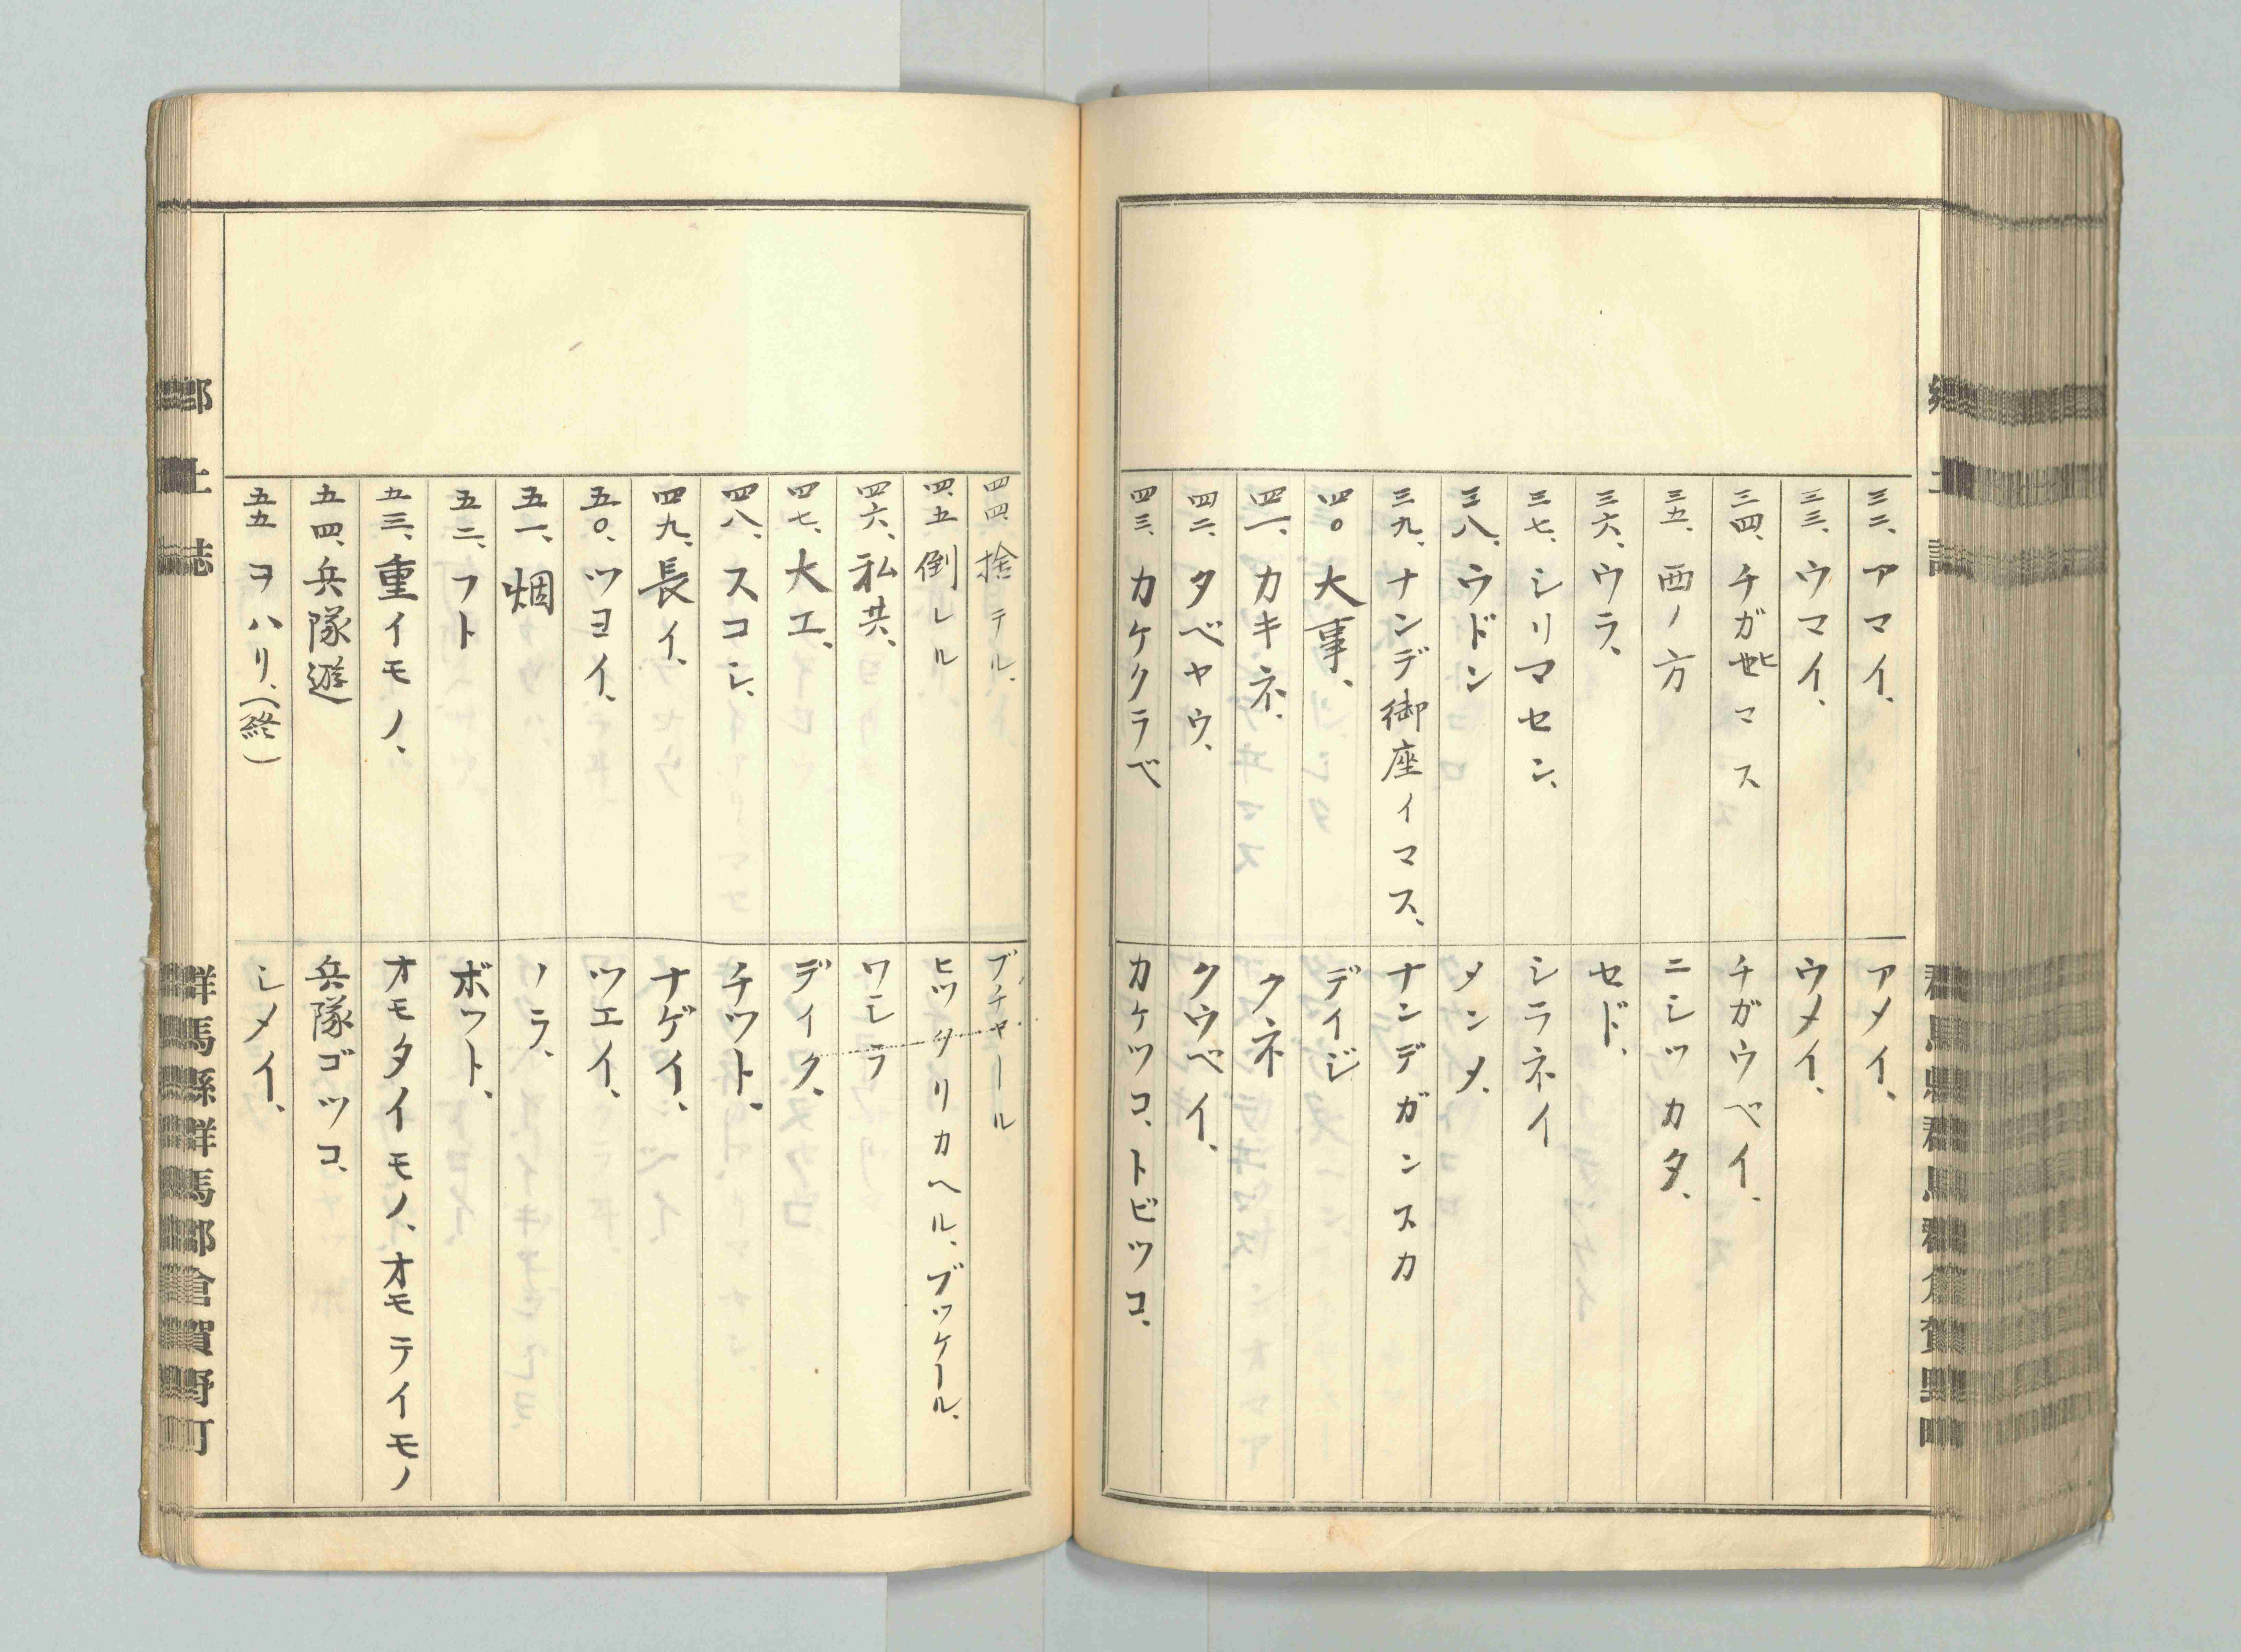 三二、アマイ、 アメイ、
三三、ウマイ、 ウメイ、
三四、チガヒマス チガウベイ、
三五、西ノ方 ニシッカタ、
三六、ウラ、 セド、
三七、シリマセン、 シラネイ
三八、ウドン メンメ、
三九、ナンデ御座イマス、 ナンデガンスカ
四〇大事、 デイジ
四一、カキネ、 クネ
四二、タベヤウ、 クウベイ、
四三、カケクラベ カケツコ、トビツコ、
四四、捨テル、 ブチャール
四五、倒レル ヒツタリカヘル、ブッケール、
四六、私共、 ワシラ
四七、大工、 デイク、
四八、スコシ、 チツト、
四九、長イ、 ナゲイ、
五〇、ツヨイ、 ツエイ、
五一、畑 ノラ、
五二、フト ボット、
五三、重イモノ、 オモタイモノ、オモテイモノ
五四、兵隊遊 兵隊ゴツコ、
五五 ヲハリ、(終) シメイ、
郷土誌
群馬縣群馬郡倉賀野町